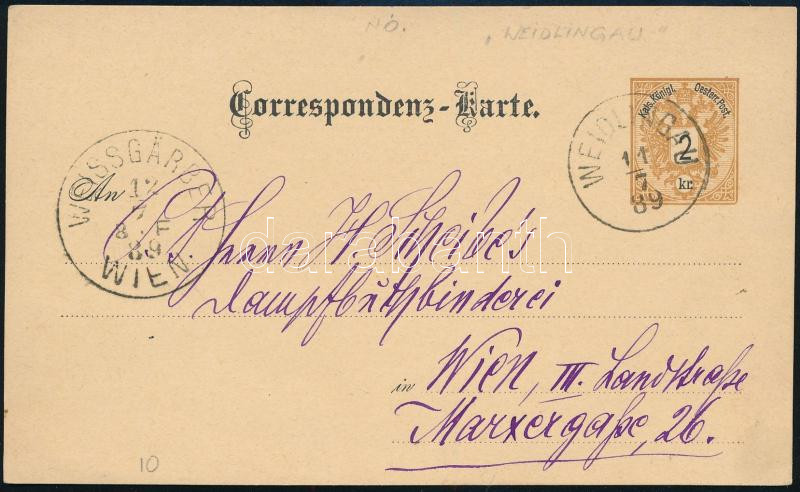 NÖ. "WEIDLINGAU"
Correspondenz-Karte.
Kais. Königl. Oesterr. Post.
2
kr.
WEIDLINGAU
11
7
89
WEISSGÄRBER
12
7
8 F
89
WIEN.
An
Herrn H. Scheibe's
Dampfbuchbinderei
darabanth
in Wien, III. Landstraße
Marxergaße, 26.
10